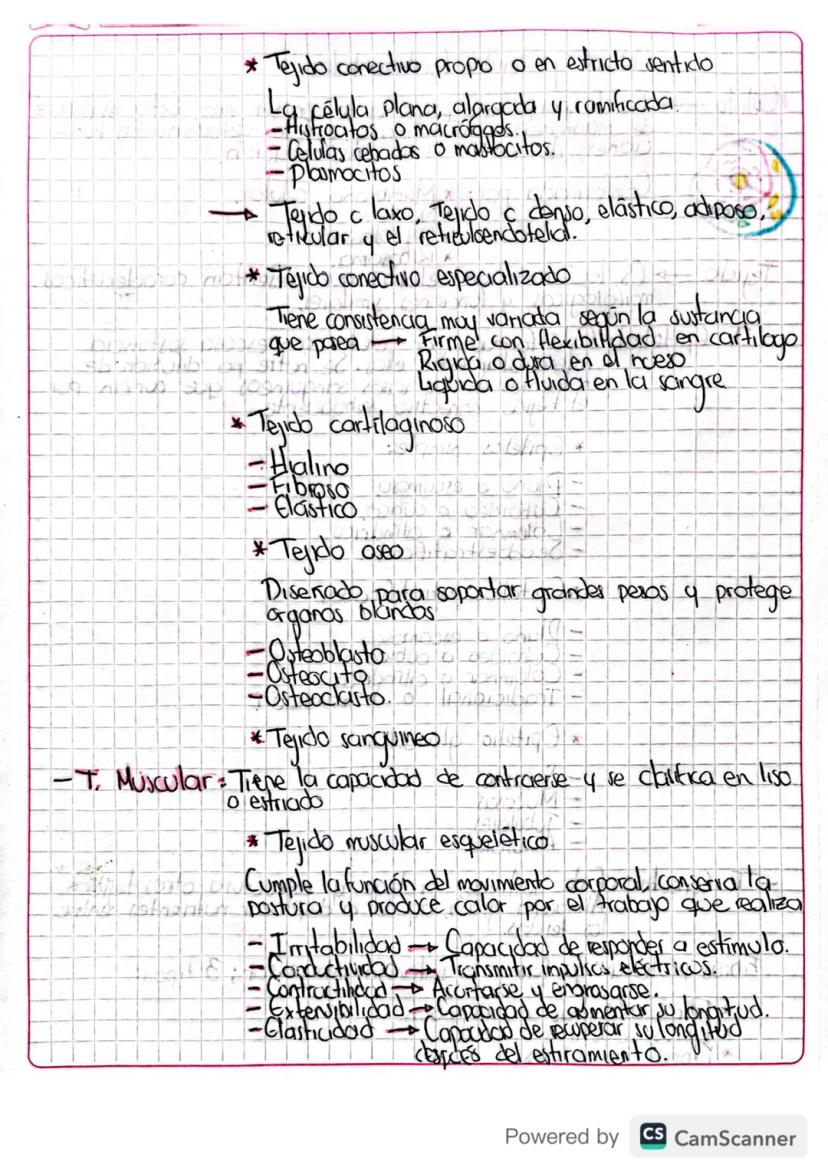 * Tejido conectivo propio o en estricto sentido
La célula plana, alargada y ramificada.
- Histiocitos o macrófagos.
- Células cebadas o mastocitos.
- Plasmocitos
→ Tejido c laxo, Tejido c denso, elástico, adiposo,
reticular y el reticuloendotelial.
* Tejido conectivo especializado
Tiene consistencia muy variada según la sustancia
que posea → Firme con flexibilidad en cartílago
Rigida o dura en el hueso
Líquida o fluida en la sangre
* Tejido cartilaginoso
- Hialino
- Fibroso
- Elástico
* Tejido oseo
Diseñado para soportar grandes pesos y protege
organos blandos
- Osteoblasto
- Osteocito
- Osteoclasto.
* Tejido sanguineo
- T. Muscular: Tiene la capacidad de contraerse y se clasifica en liso
o estriado
* Tejido muscular esquelético
Cumple la función del movimiento corporal, conserva la
postura y produce calor por el trabajo que realiza
- Irritabilidad → Capacidad de responder a estímulo.
- Conductividad → Transmitir impulsos eléctricos.
- Contractilidad → Acortarse y engrosarse.
- Extensibilidad → Capacidad de aumentar su longitud.
- Elasticidad → Capacidad de recuperar su longitud
después del estiramiento.
Powered by CS CamScanner